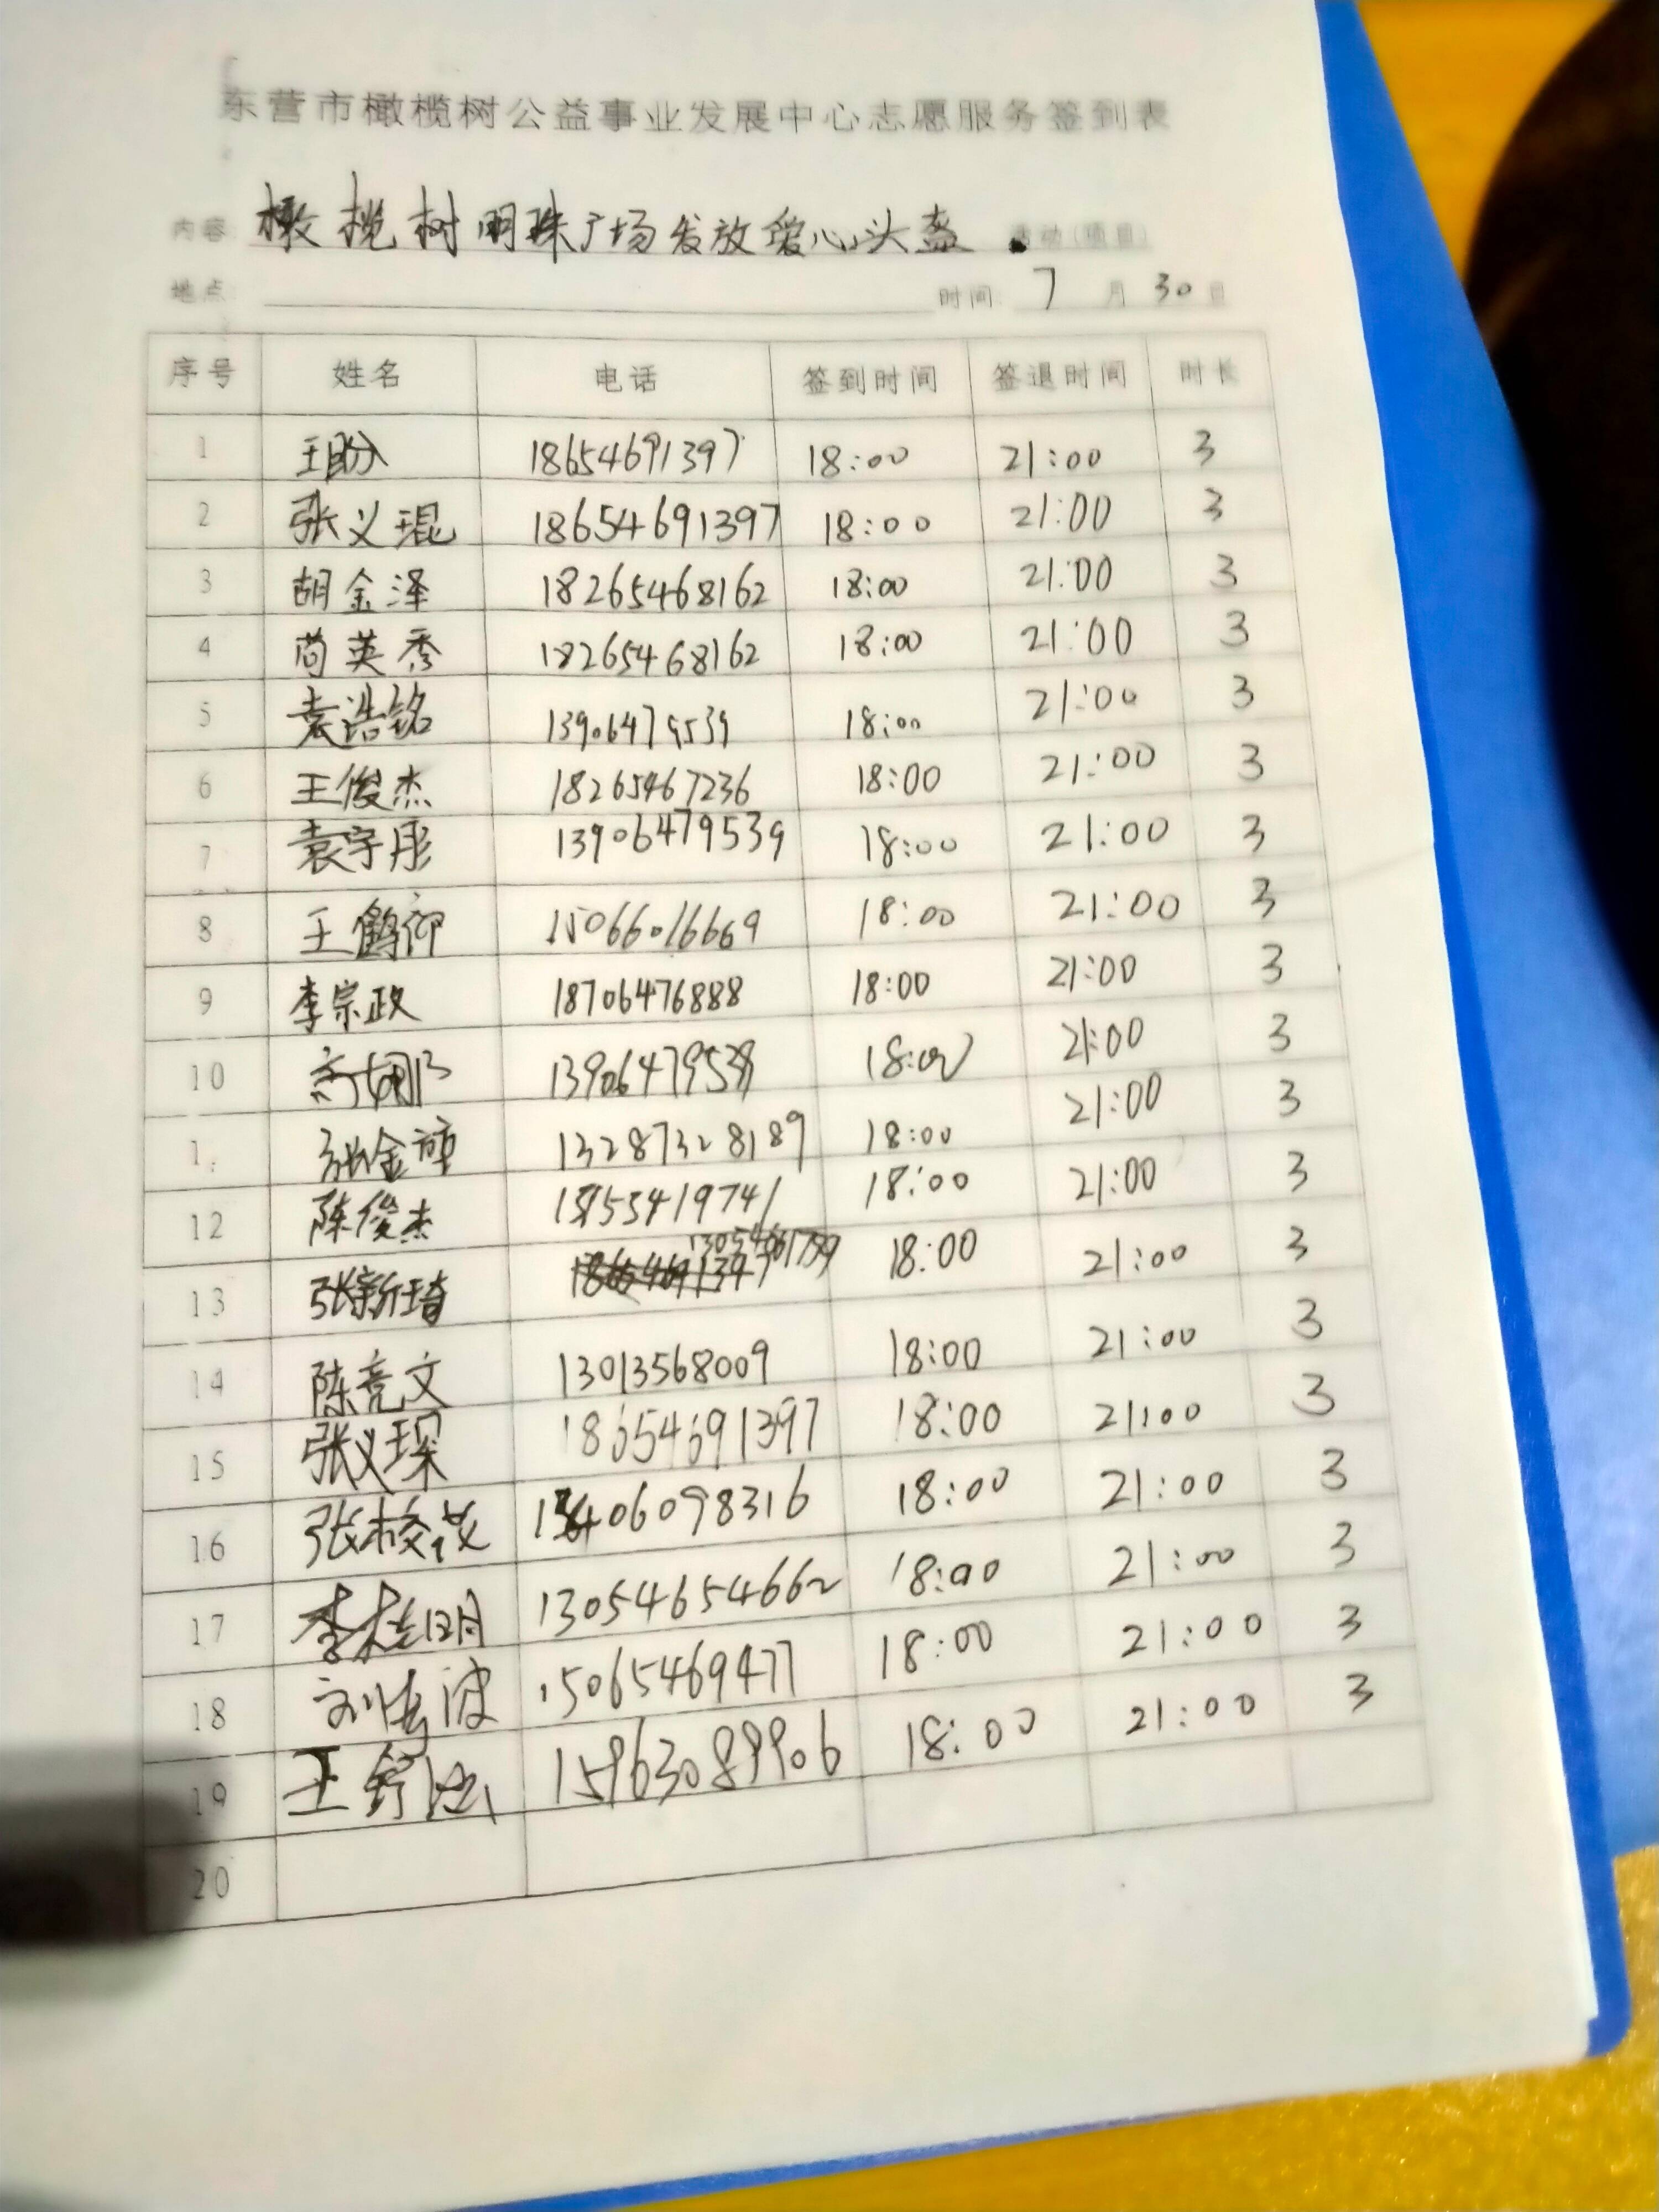 东营市橄榄树公益事业发展中心志愿服务签到表
内容 橄榄树明珠广场发放爱心头盔 活动(项目)
地点: 时间: 7 月 30 日
序号 姓名 电话 签到时间 签退时间 时长
1 王盼 18654691397 18:00 21:00 3
2 张义琨 18654691397 18:00 21:00 3
3 胡金泽 18265468162 18:00 21:00 3
4 尚英秀 18265468162 18:00 21:00 3
5 袁浩铭 13906479539 18:00 21:00 3
6 王俊杰 18265467236 18:00 21:00 3
7 袁宇彤 13906479539 18:00 21:00 3
8 王鹤仰 15066016669 18:00 21:00 3
9 李宗政 18706476888 18:00 21:00 3
10 18:00 21:00 3
张金 13287328189 18:00 21:00 3
12 陈俊杰 18:00 21:00 3
13 张新琦 18:00 21:00 3
14 陈竞文 13013568009 18:00 21:00 3
15 张义琛 18654691397 18:00 21:00 3
16 张校 18:00 21:00 3
17 李桂明 13054654662 18:00 21:00 3
18 刘 波 15065469477 18:00 21:00 3
19 王 15963089906 18:00 21:00 3
20